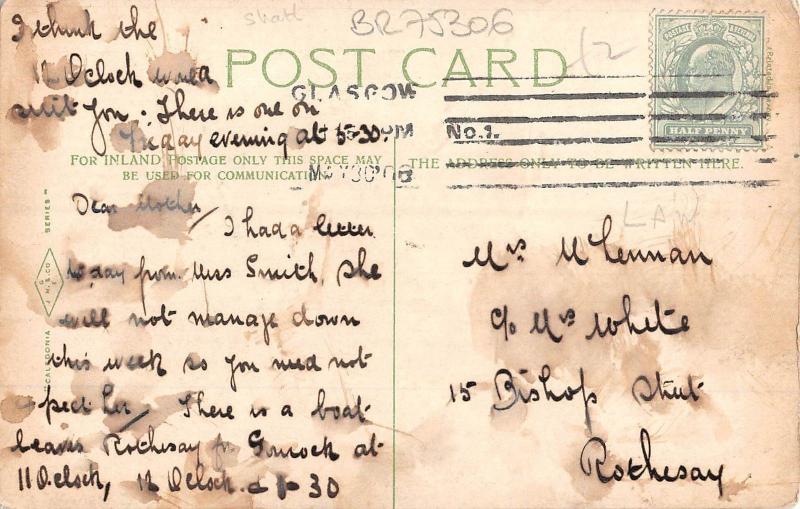 I think the
12 Oclock would
suit you. There is one on
Friday evening at 5-30.
Shatt
BR75306
POST CARD
GLASGOW
PM
MAY 30 06
No. 1.
POSTAGE REVENUE
HALF PENNY
FOR INLAND POSTAGE ONLY THIS SPACE MAY
BE USED FOR COMMUNICATION
THE ADDRESS ONLY TO BE WRITTEN HERE.
Dear Mother,
I had a letter
to,day from Miss Smith, She
will not manage down
this week so you need not
pect her, There is a boat
leaves Rothesay for Gourock at
11 Oclock, 12 Oclock. & 1- 30
CALEDONIA SERIES
LAW
Mrs McLennan
c/o Mrs White
15 Bishop Street
Rothesay